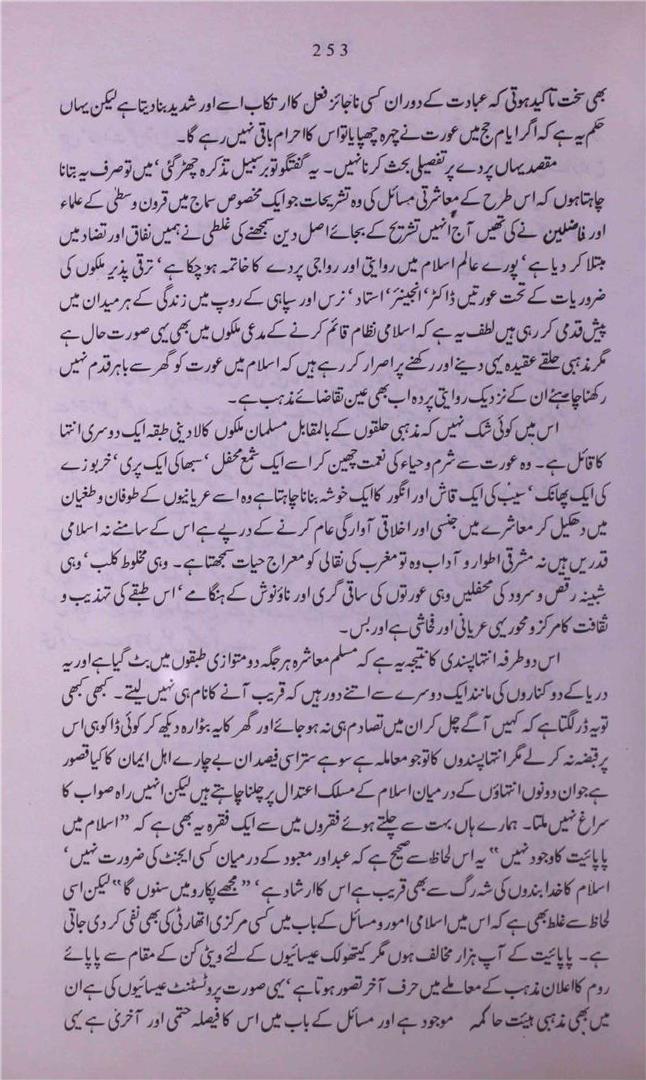 253
بھی سخت تاکید ہوتی کہ عبادت کے دوران کسی ناجائز فعل کا ارتکاب اسے اور شدید بنا دیتا ہے لیکن یہاں
حکم یہ ہے کہ اگر ایام حج میں عورت نے چہرہ چھپایا تو اس کا احرام باقی نہیں رہے گا۔
مقصد یہاں پردے پر تفصیلی بحث کرنا نہیں۔ یہ گفتگو تو بر سبیل تذکرہ چھڑ گئی‘ میں تو صرف یہ بتانا
چاہتا ہوں کہ اس طرح کے معاشرتی مسائل کی وہ تشریحات جو ایک مخصوص سماج میں قرون وسطیٰ کے علماء
اور فاضلین نے کی تھیں آج انہیں تشریح کے بجائے اصل دین سمجھنے کی غلطی نے ہمیں نفاق اور تضاد میں
مبتلا کر دیا ہے‘ پورے عالم اسلام میں روایتی اور رواجی پردے کا خاتمہ ہو چکا ہے‘ ترقی پذیر ملکوں کی
ضروریات کے تحت عورتیں ڈاکٹر‘ انجینئر‘ استاد‘ نرس اور سپاہی کے روپ میں زندگی کے ہر میدان میں
پیش قدمی کر رہی ہیں لطف یہ ہے کہ اسلامی نظام قائم کرنے کے مدعی ملکوں میں بھی یہی صورت حال ہے
مگر مذہبی حلقے عقیدہ یہی دینے اور رکھنے پر اصرار کر رہے ہیں کہ اسلام میں عورت کو گھر سے باہر قدم نہیں
رکھنا چاہئے ان کے نزدیک روایتی پردہ اب بھی عین تقاضائے مذہب ہے۔
اس میں کوئی شک نہیں کہ مذہبی حلقوں کے بالمقابل مسلمان ملکوں کا لادینی طبقہ ایک دوسری انتہا
کا قائل ہے۔ وہ عورت سے شرم و حیاء کی نعمت چھین کر اسے ایک شمع محفل‘ سبھا کی ایک پری‘ خربوزے
کی ایک پھانک‘ سیب کی ایک قاش اور انگور کا ایک خوشہ بنانا چاہتا ہے وہ اسے عریانیوں کے طوفان و طغیان
میں دھکیل کر معاشرے میں جنسی اور اخلاقی آوارگی عام کرنے کے درپے ہے اس کے سامنے نہ اسلامی
قدریں ہیں نہ مشرقی اطوار و آداب وہ تو مغرب کی نقالی کو معراج حیات سمجھتا ہے۔ وہی مخلوط کلب‘ وہی
شبینہ رقص و سرود کی محفلیں وہی عورتوں کی ساقی گری اور ناؤنوش کے ہنگامے‘ اس طبقے کی تہذیب و
ثقافت کا مرکز و محور یہی عریانی اور فحاشی ہے اور بس۔
اس دو طرفہ انتہا پسندی کا نتیجہ یہ ہے کہ مسلم معاشرہ ہر جگہ دو متوازی طبقوں میں بٹ گیا ہے اور یہ
دریا کے دو کناروں کی مانند ایک دوسرے سے اتنے دور ہیں کہ قریب آنے کا نام ہی نہیں لیتے۔ کبھی کبھی
تو یہ ڈر لگتا ہے کہ کہیں آگے چل کر ان میں تصادم ہی نہ ہو جائے اور گھر کا یہ بٹوارہ دیکھ کر کوئی ڈاکو ہی اس
پر قبضہ نہ کر لے مگر انتہا پسندوں کا تو جو معاملہ ہے سو ہے ستر اسی فیصد ان بے چارے اہل ایمان کا کیا قصور
ہے جو ان دونوں انتہاؤں کے درمیان اسلام کے مسلک اعتدال پر چلنا چاہتے ہیں لیکن انہیں راہ صواب کا
سراغ نہیں ملتا۔ ہمارے ہاں بہت سے چلتے ہوئے فقروں میں سے ایک فقرہ یہ بھی ہے کہ ”اسلام میں
پاپائیت کا وجود نہیں“ یہ اس لحاظ سے صحیح ہے کہ عبد اور معبود کے درمیان کسی ایجنٹ کی ضرورت نہیں‘
اسلام کا خدا بندوں کی شہ رگ سے بھی قریب ہے اس کا ارشاد ہے‘ ”مجھے پکارو میں سنوں گا“ لیکن اسی
لحاظ سے غلط بھی ہے کہ اس میں اسلامی امور و مسائل کے باب میں کسی مرکزی اتھارٹی کی بھی نفی کر دی جاتی
ہے۔ پاپائیت کے آپ ہزار مخالف ہوں مگر کیتھولک عیسائیوں کے لئے ویٹی کن کے مقام سے پاپائے
روم کا اعلان مذہب کے معاملے میں حرف آخر تصور ہوتا ہے‘ یہی صورت پروٹسٹنٹ عیسائیوں کی ہے ان
میں بھی مذہبی ہیئت حاکمہ موجود ہے اور مسائل کے باب میں اس کا فیصلہ حتمی اور آخری ہے یہی